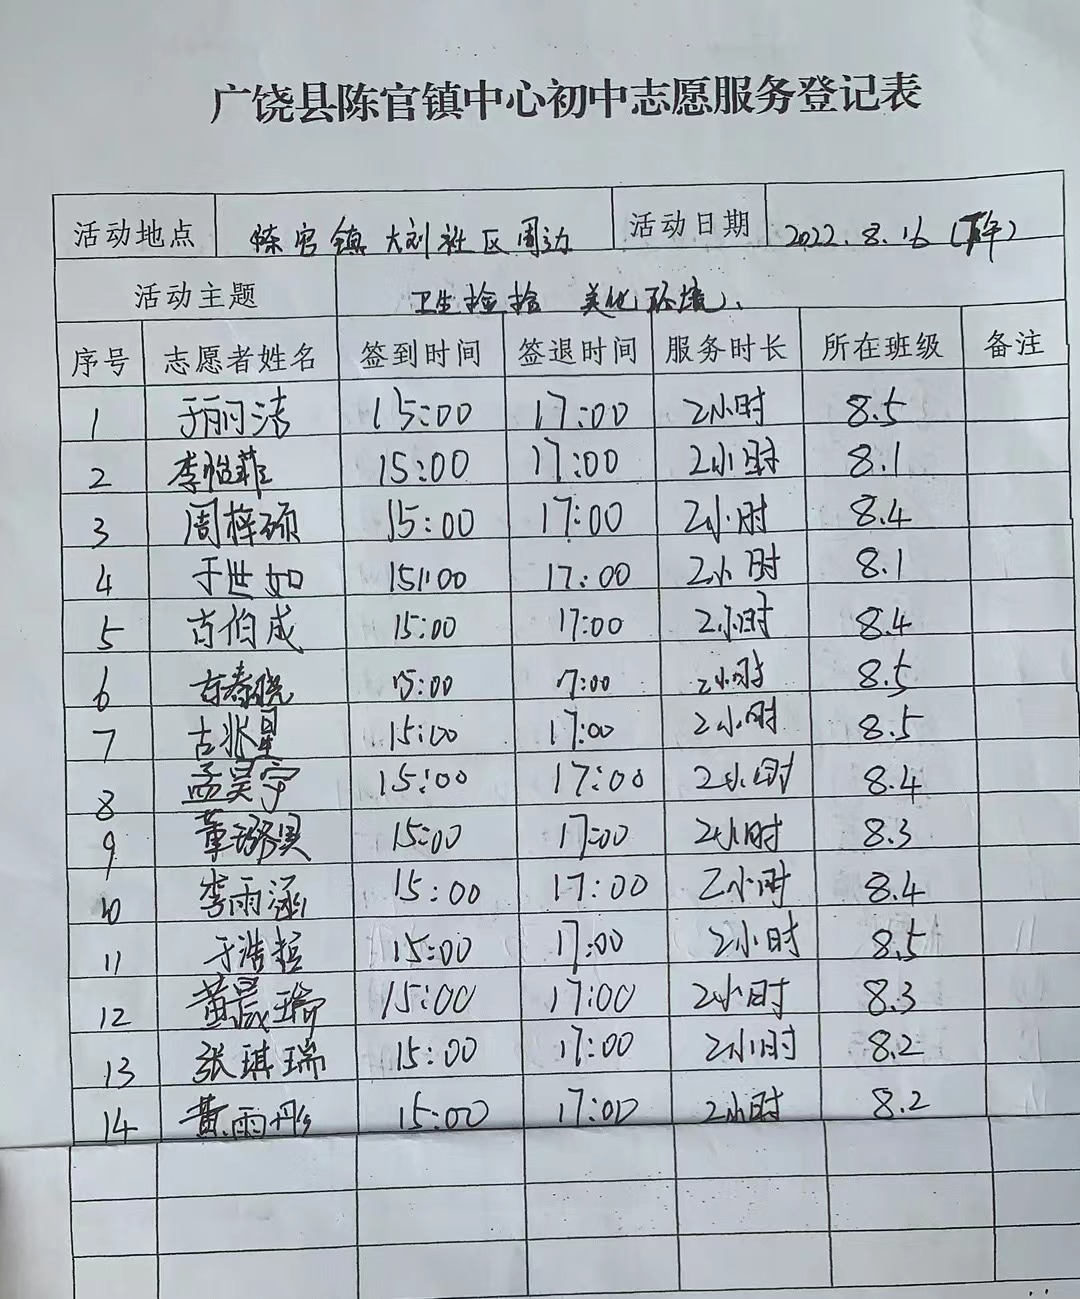 广饶县陈官镇中心初中志愿服务登记表
活动地点 陈官镇大刘社区周边 活动日期 2022.8.16(下午)
活动主题 卫生捡拾 美化环境、
序号 志愿者姓名 签到时间 签退时间 服务时长 所在班级 备注
1 于丽洁 15:00 17:00 2小时 8.5
2 李怡菲 15:00 17:00 2小时 8.1
3 周梓硕 15:00 17:00 2小时 8.4
4 于世如 15:00 17:00 2小时 8.1
5 古伯成 15:00 17:00 2小时 8.4
6 古春晓 15:00 17:00 2小时 8.5
7 古兆星 15:00 17:00 2小时 8.5
8 孟昊宇 15:00 17:00 2小时 8.4
9 15:00 17:00 2小时 8.3
10 李雨涵 15:00 17:00 2小时 8.4
11 15:00 17:00 2小时 8.5
12 15:00 17:00 2小时 8.3
13 张琪瑞 15:00 17:00 2小时 8.2
14 黄雨彤 15:00 17:00 2小时 8.2